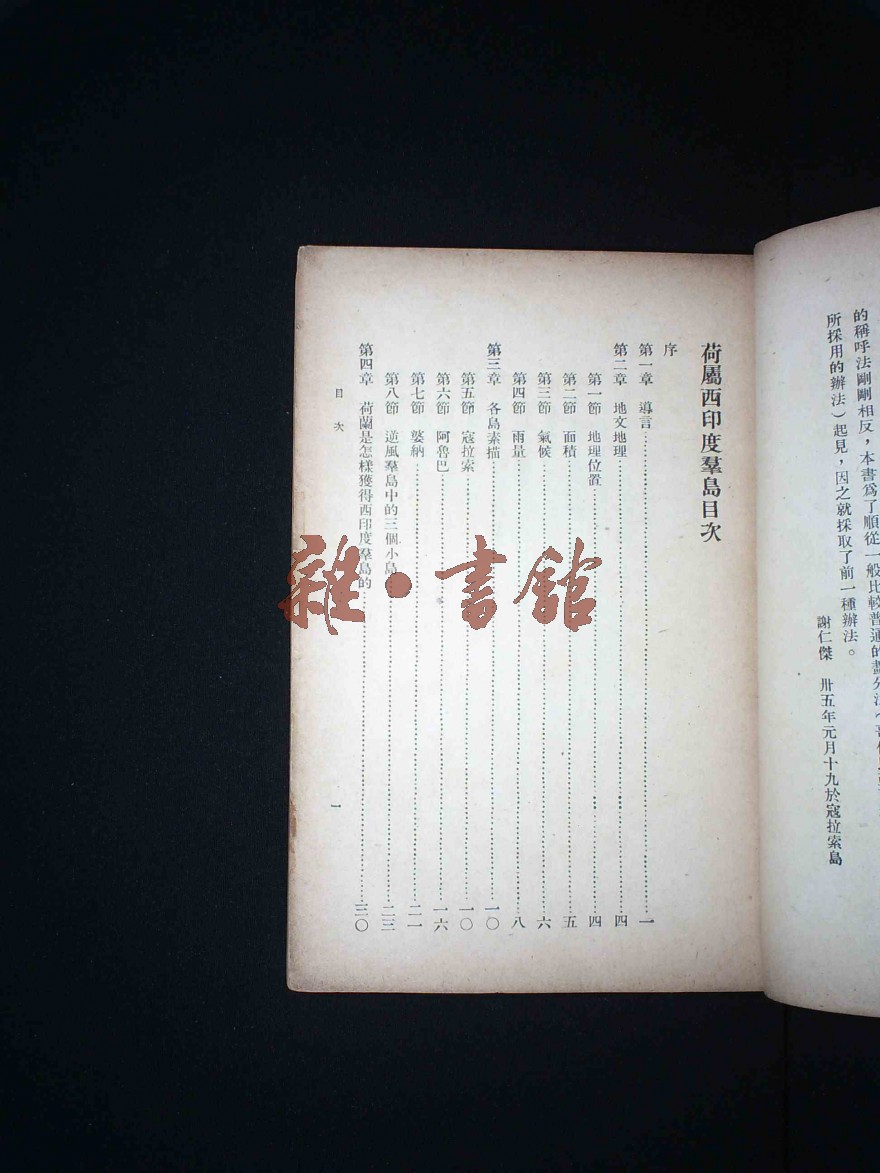 的稱呼法剛剛相反，本書爲了順從一般比較普通的劃分法（
所採用的辦法）起見，因之就採取了前一種辦法。
謝仁傑　卅五年元月十九於寇拉索島
荷屬西印度羣島目次
序
第一章　導言……一
第二章　地文地理……四
第一節　地理位置……四
第二節　面積……五
第三節　氣候……六
第四節　雨量……八
第三章　各島素描……一〇
第五節　寇拉索……一〇
第六節　阿魯巴……一六
第七節　婆納……二一
第八節　逆風羣島中的三個小島……二三
第四章　荷蘭是怎樣獲得西印度羣島的……三〇
目次
一
雜·書館